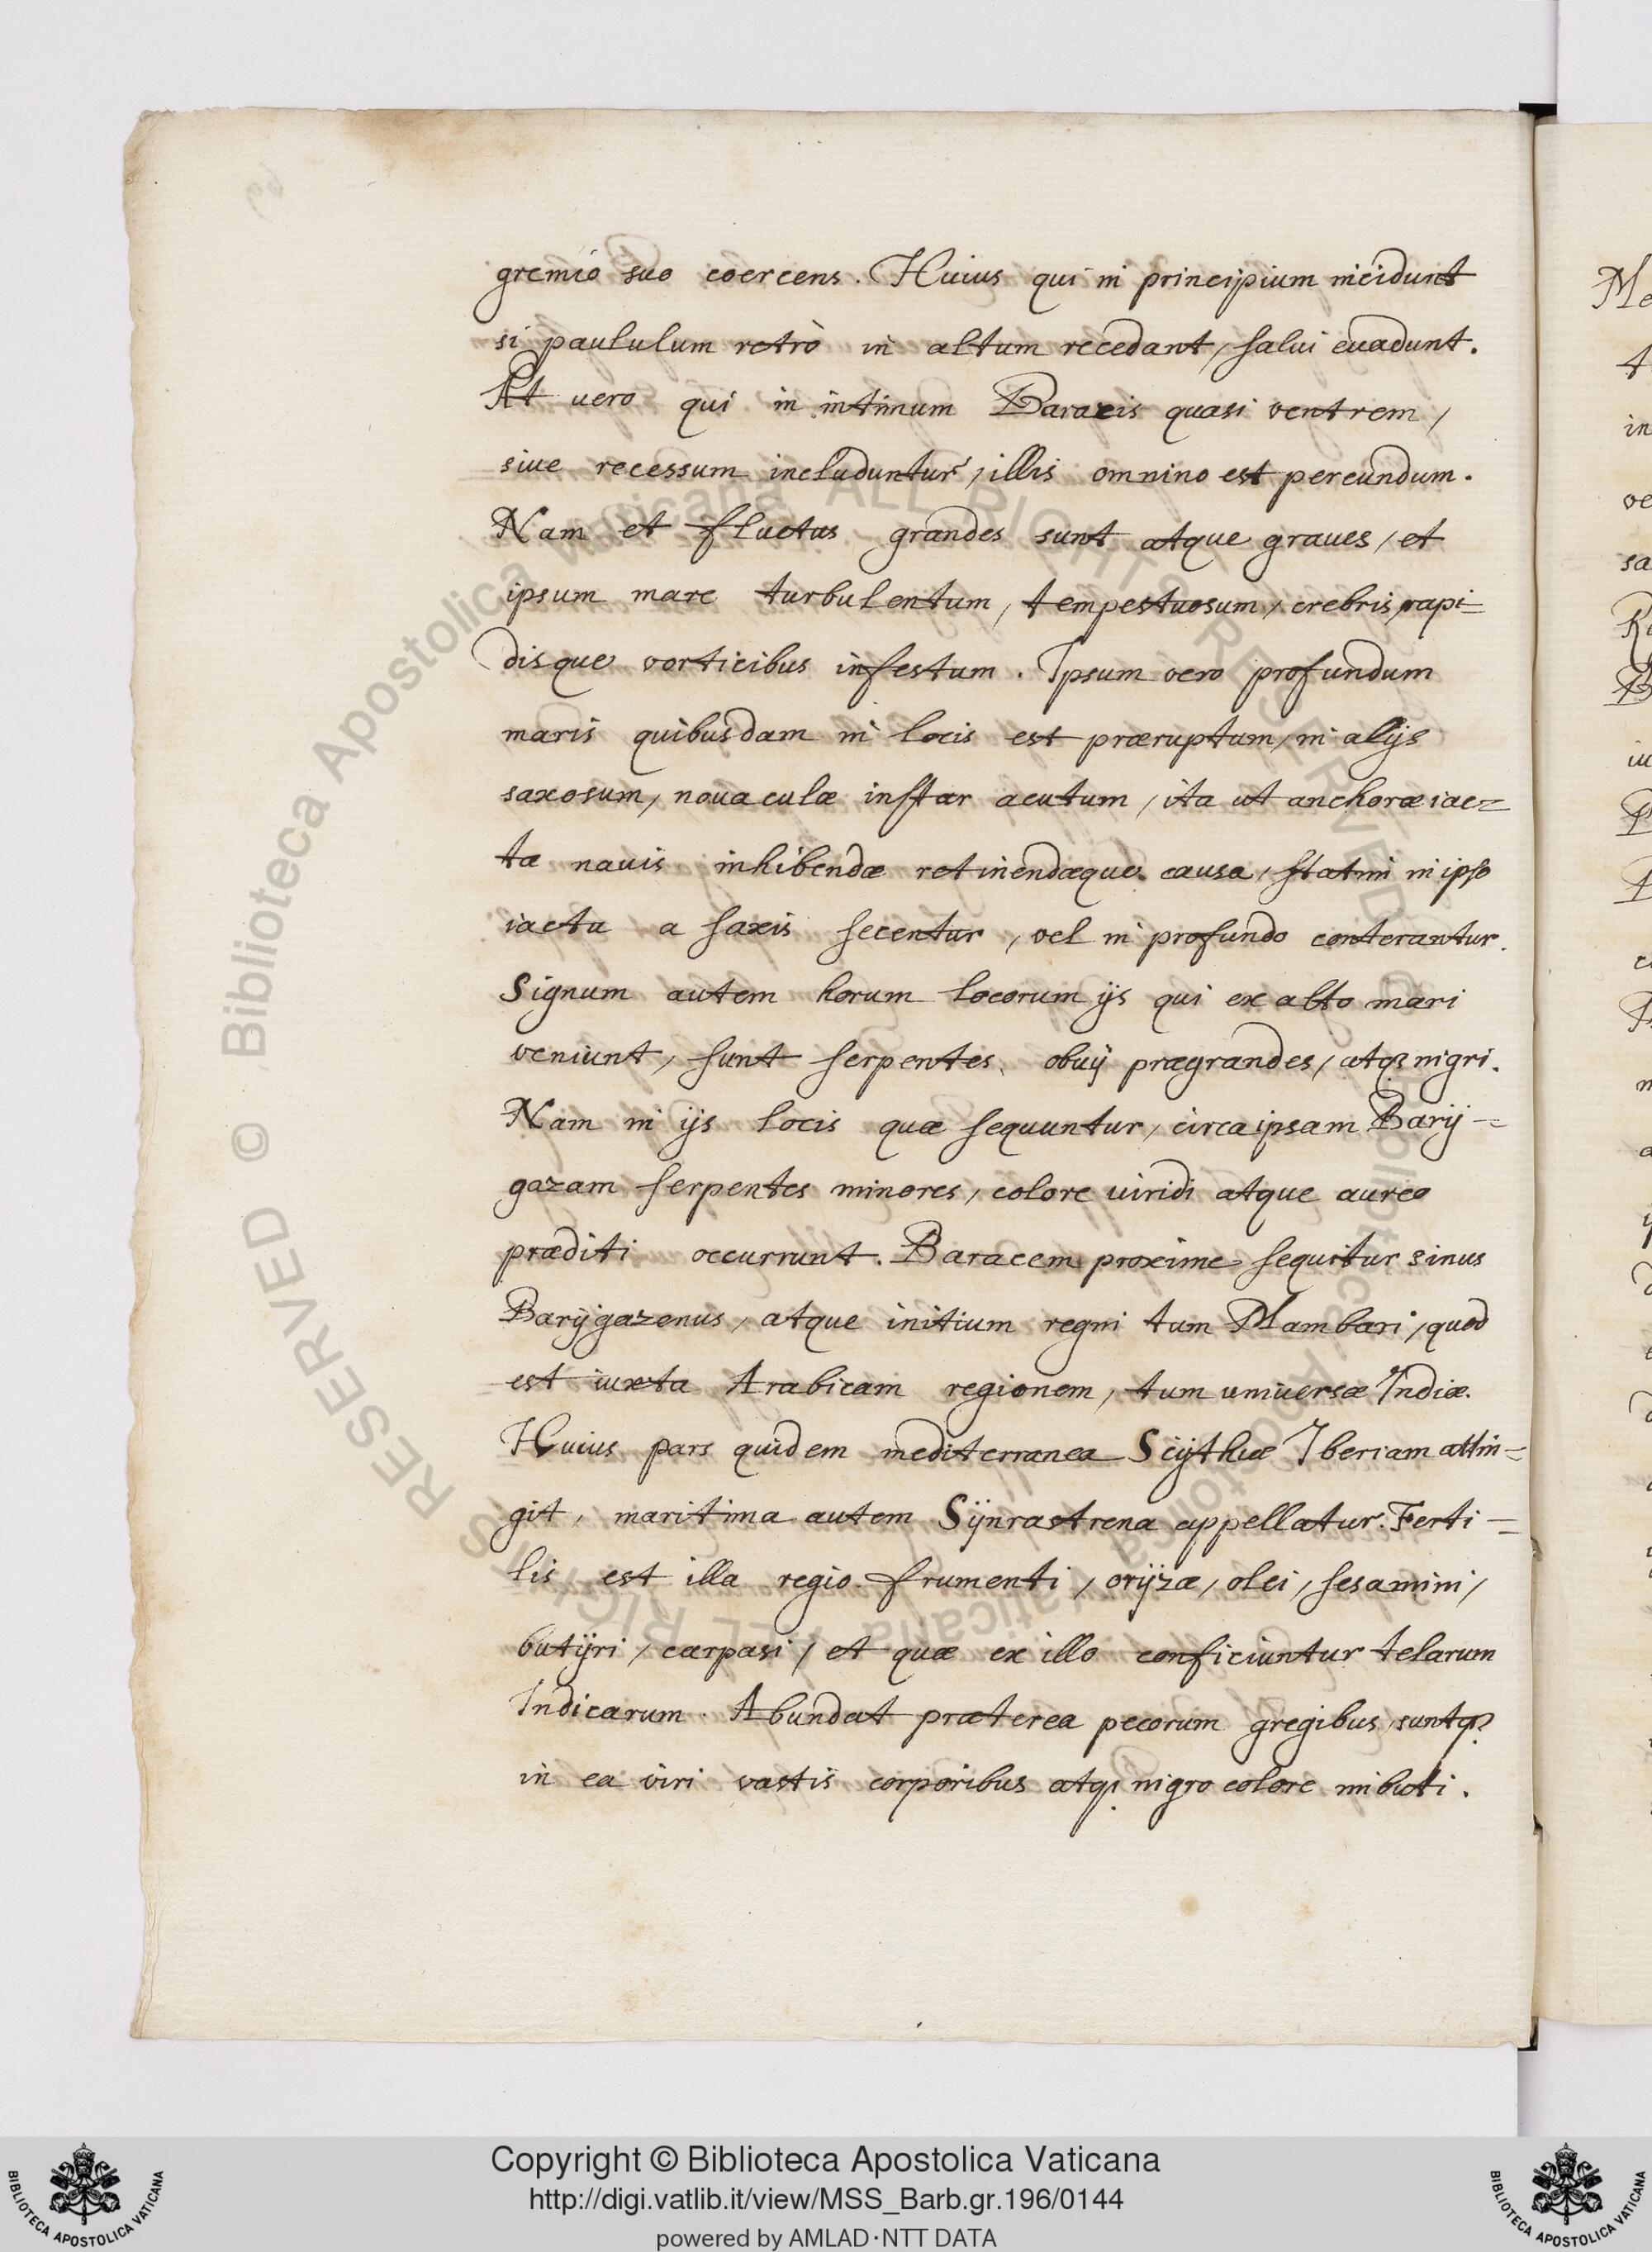 gremio suo coercens. Huius qui in principium incidunt
si paululum retrò in altum recedant, salui euadunt.
At uero qui in intimum Baracis quasi ventrem,
siue recessum includuntur, illis omnino est pereundum.
Nam et fluctus grandes sunt atque graues, et
ipsum mare turbulentum, tempestuosum, crebris, rapi=
disque vorticibus infestum. Ipsum vero profundum
maris quibusdam in locis est præruptum, in alijs
saxosum, nouaculæ instar acutum, ita ut anchoræ iac=
tæ nauis inhibendæ retinendæque causa, statim in ipso
iactu a saxis secentur, vel in profundo conterantur.
Signum autem horum locorum ijs qui ex alto mari
veniunt, sunt serpentes, obuij prægrandes, atq3 nigri.
Nam in ijs locis quæ sequuntur, circa ipsam Barij=
gazam serpentes minores, colore uiridi atque aureo
præditi occurrunt. Baracem proxime sequitur sinus
Barijgazenus, atque initium regni tum Mambari, quod
est iuxta Arabicam regionem, tum uniuersæ Indiæ.
Huius pars quidem mediterranea Scijthiæ Iberiam attin=
git, maritima autem Sijnrastrena appellatur. Ferti=
lis est illa regio frumenti, orijzæ, olei, sesamini,
butijri, carpasi, et quæ ex illo conficiuntur telarum
Indicarum. Abundat præterea pecorum gregibus, suntq3
in ea viri vastis corporibus atq3 nigro colore imbuti.
Me
in
ve
sa
© Biblioteca Apostolica Vaticana ALL RIGHTS RESERVED © Biblioteca Apostolica Vaticana ALL RIGHTS RESERVED
BIBLIOTECA APOSTOLICA VATICANA
Copyright © Biblioteca Apostolica Vaticana
http://digi.vatlib.it/view/MSS_Barb.gr.196/0144
powered by AMLAD·NTT DATA
BIBLIOTECA APOSTOLICA VATICANA